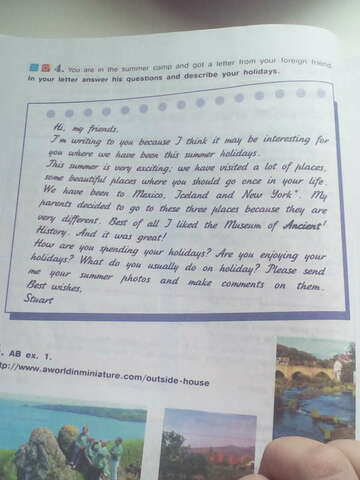 4. You are in the summer camp and got a letter from your foreign friend.
In your letter answer his questions and describe your holidays.
Hi, my friends,
I'm writing to you because I think it may be interesting for
you where we have been this summer holidays.
This summer is very exciting: we have visited a lot of places,
some beautiful places where you should go once in your life.
We have been to Mexico, Iceland and New York*. My
parents decided to go to these three places because they are
very different. Best of all I liked the Museum of Ancient¹
History. And it was great!
How are you spending your holidays? Are you enjoying your
holidays? What do you usually do on holiday? Please send
me your summer photos and make comments on them.
Best wishes,
Stuart
. AB ex. 1.
tp://www.aworldinminiature.com/outside-house